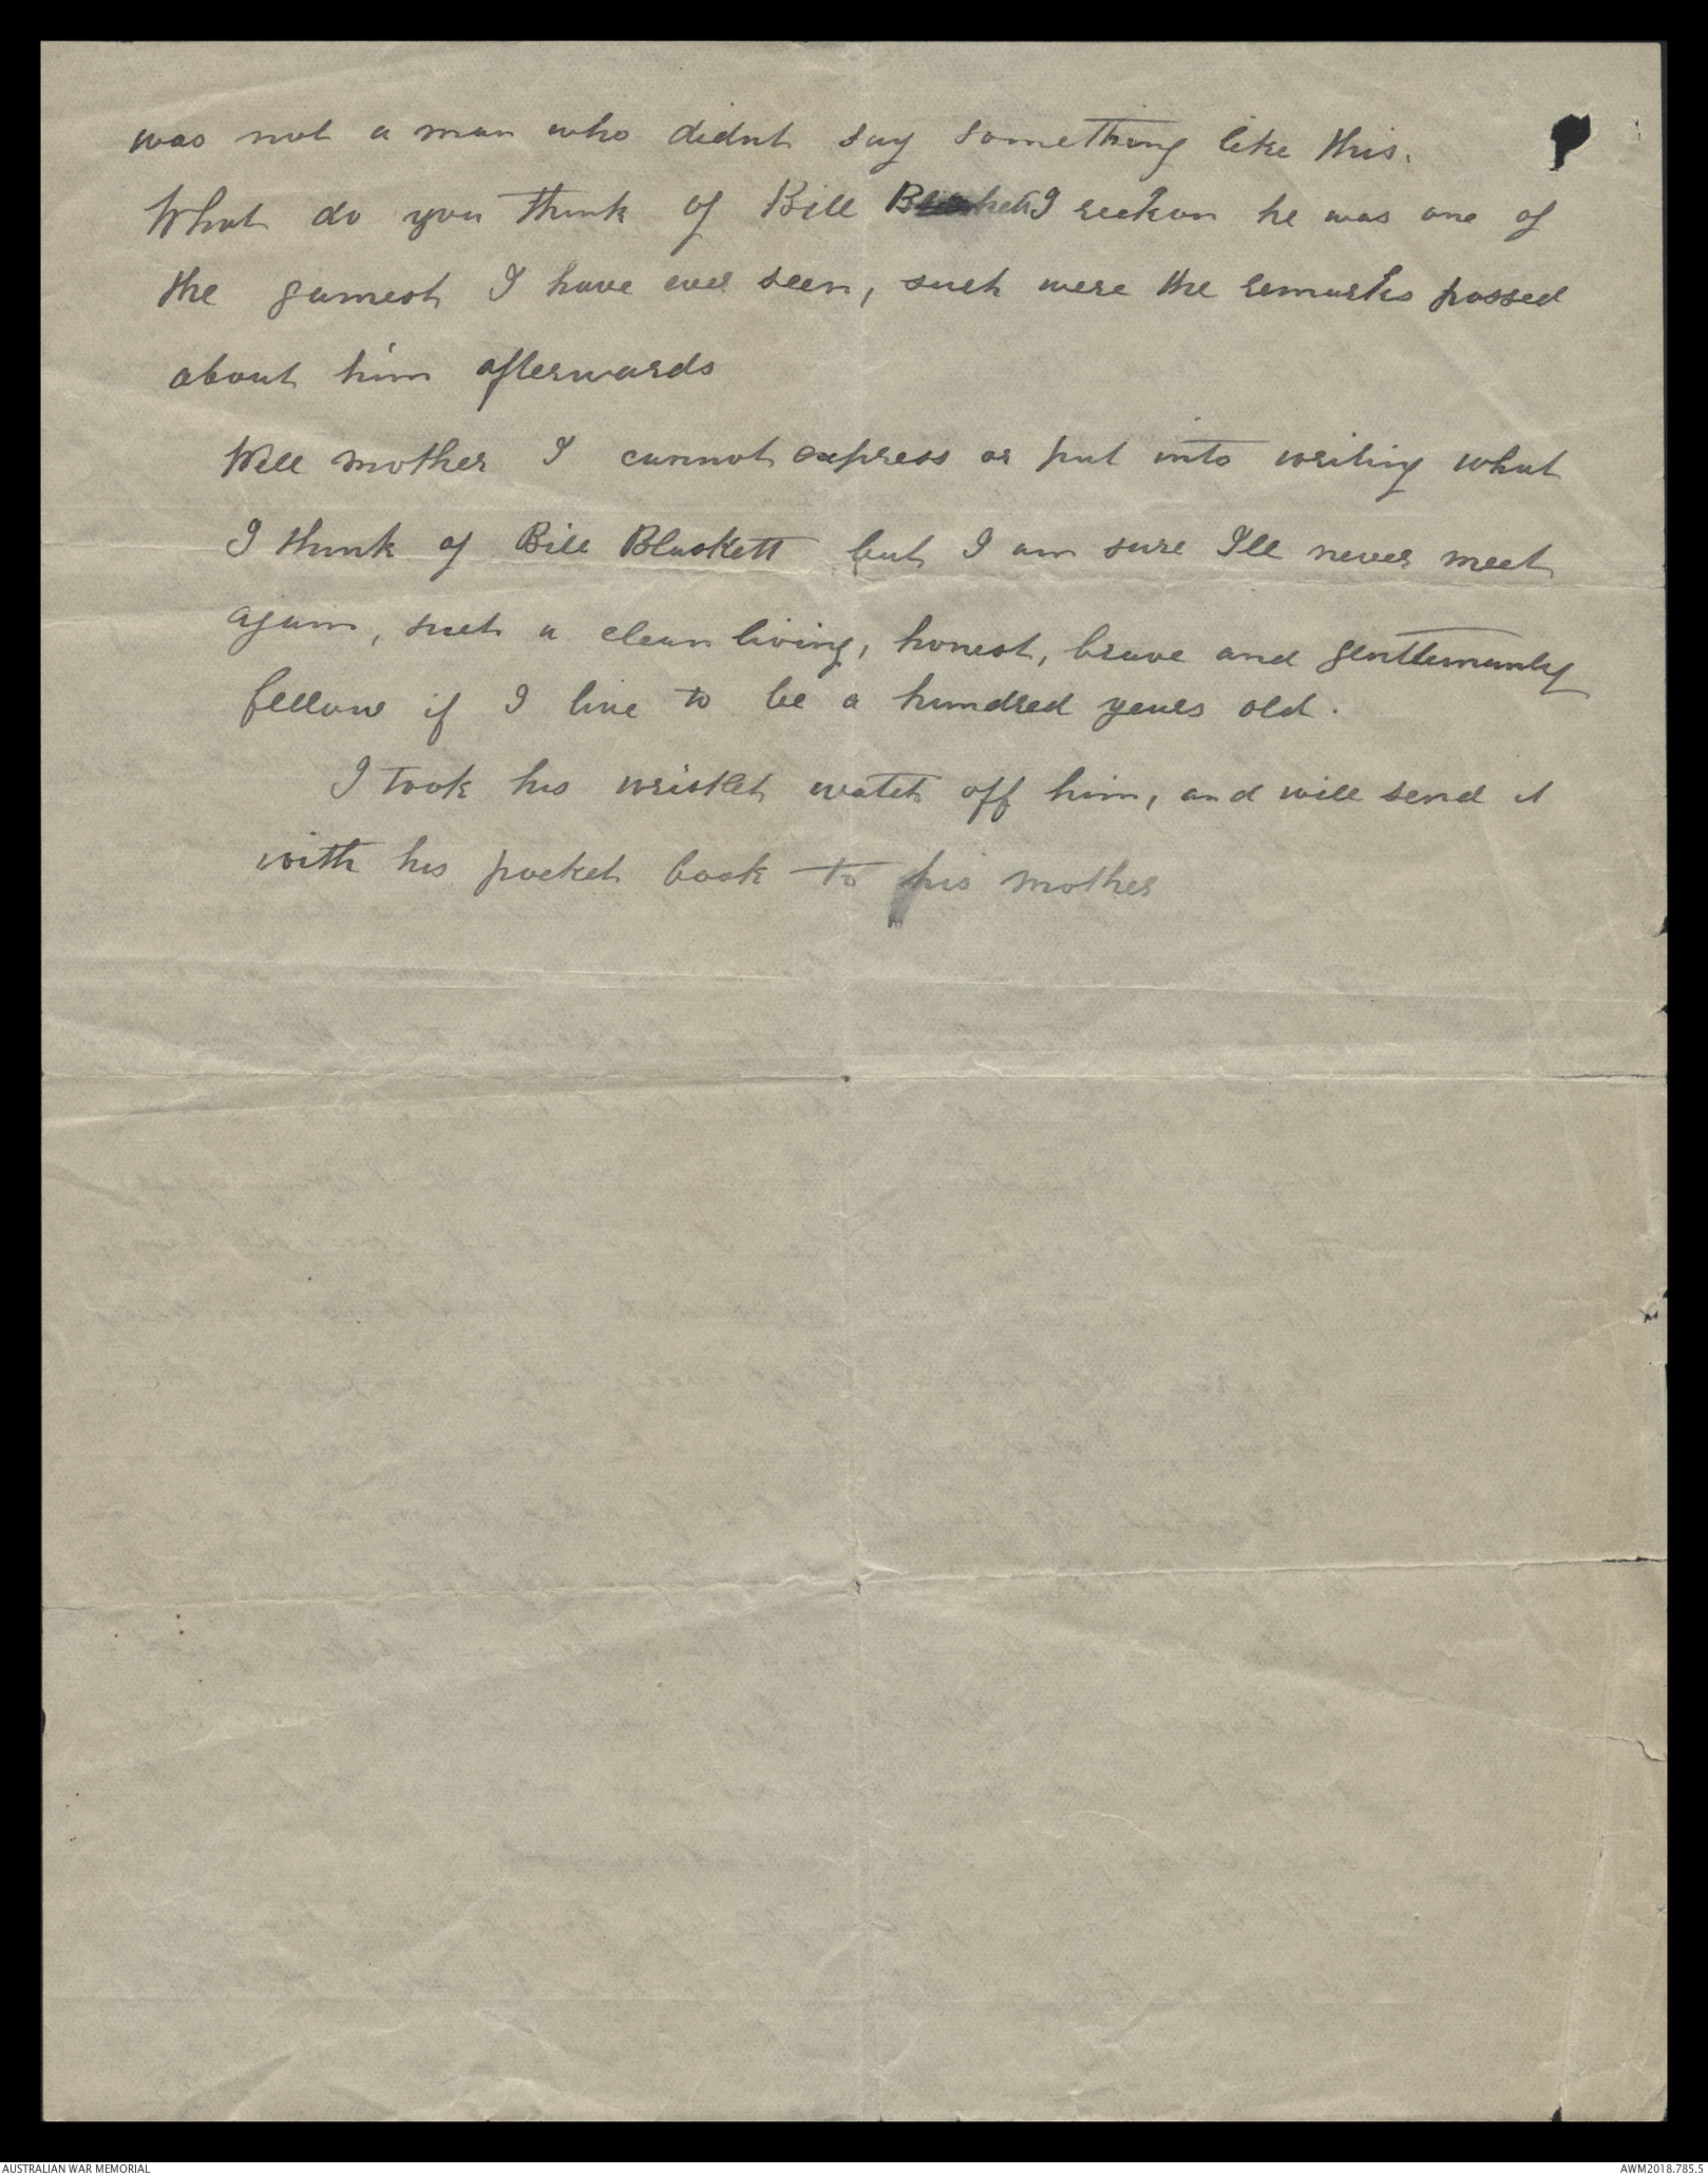 was not a man who didnt say something like this.
What do you think of Bill Blaskett I reckon he was one of
the gamest I have ever seen, such were the remarks passed
about him afterwards
Well mother I cannot express or put into writing what
I think of Bill Blaskett but I am sure I'll never meet
again, such a clean living, honest, brave and gentlemanly
fellow if I live to be a hundred years old.
I took his wristlet watch off him, and will send it
with his pocket book to his mother
AUSTRALIAN WAR MEMORIAL
AWM2018.785.5